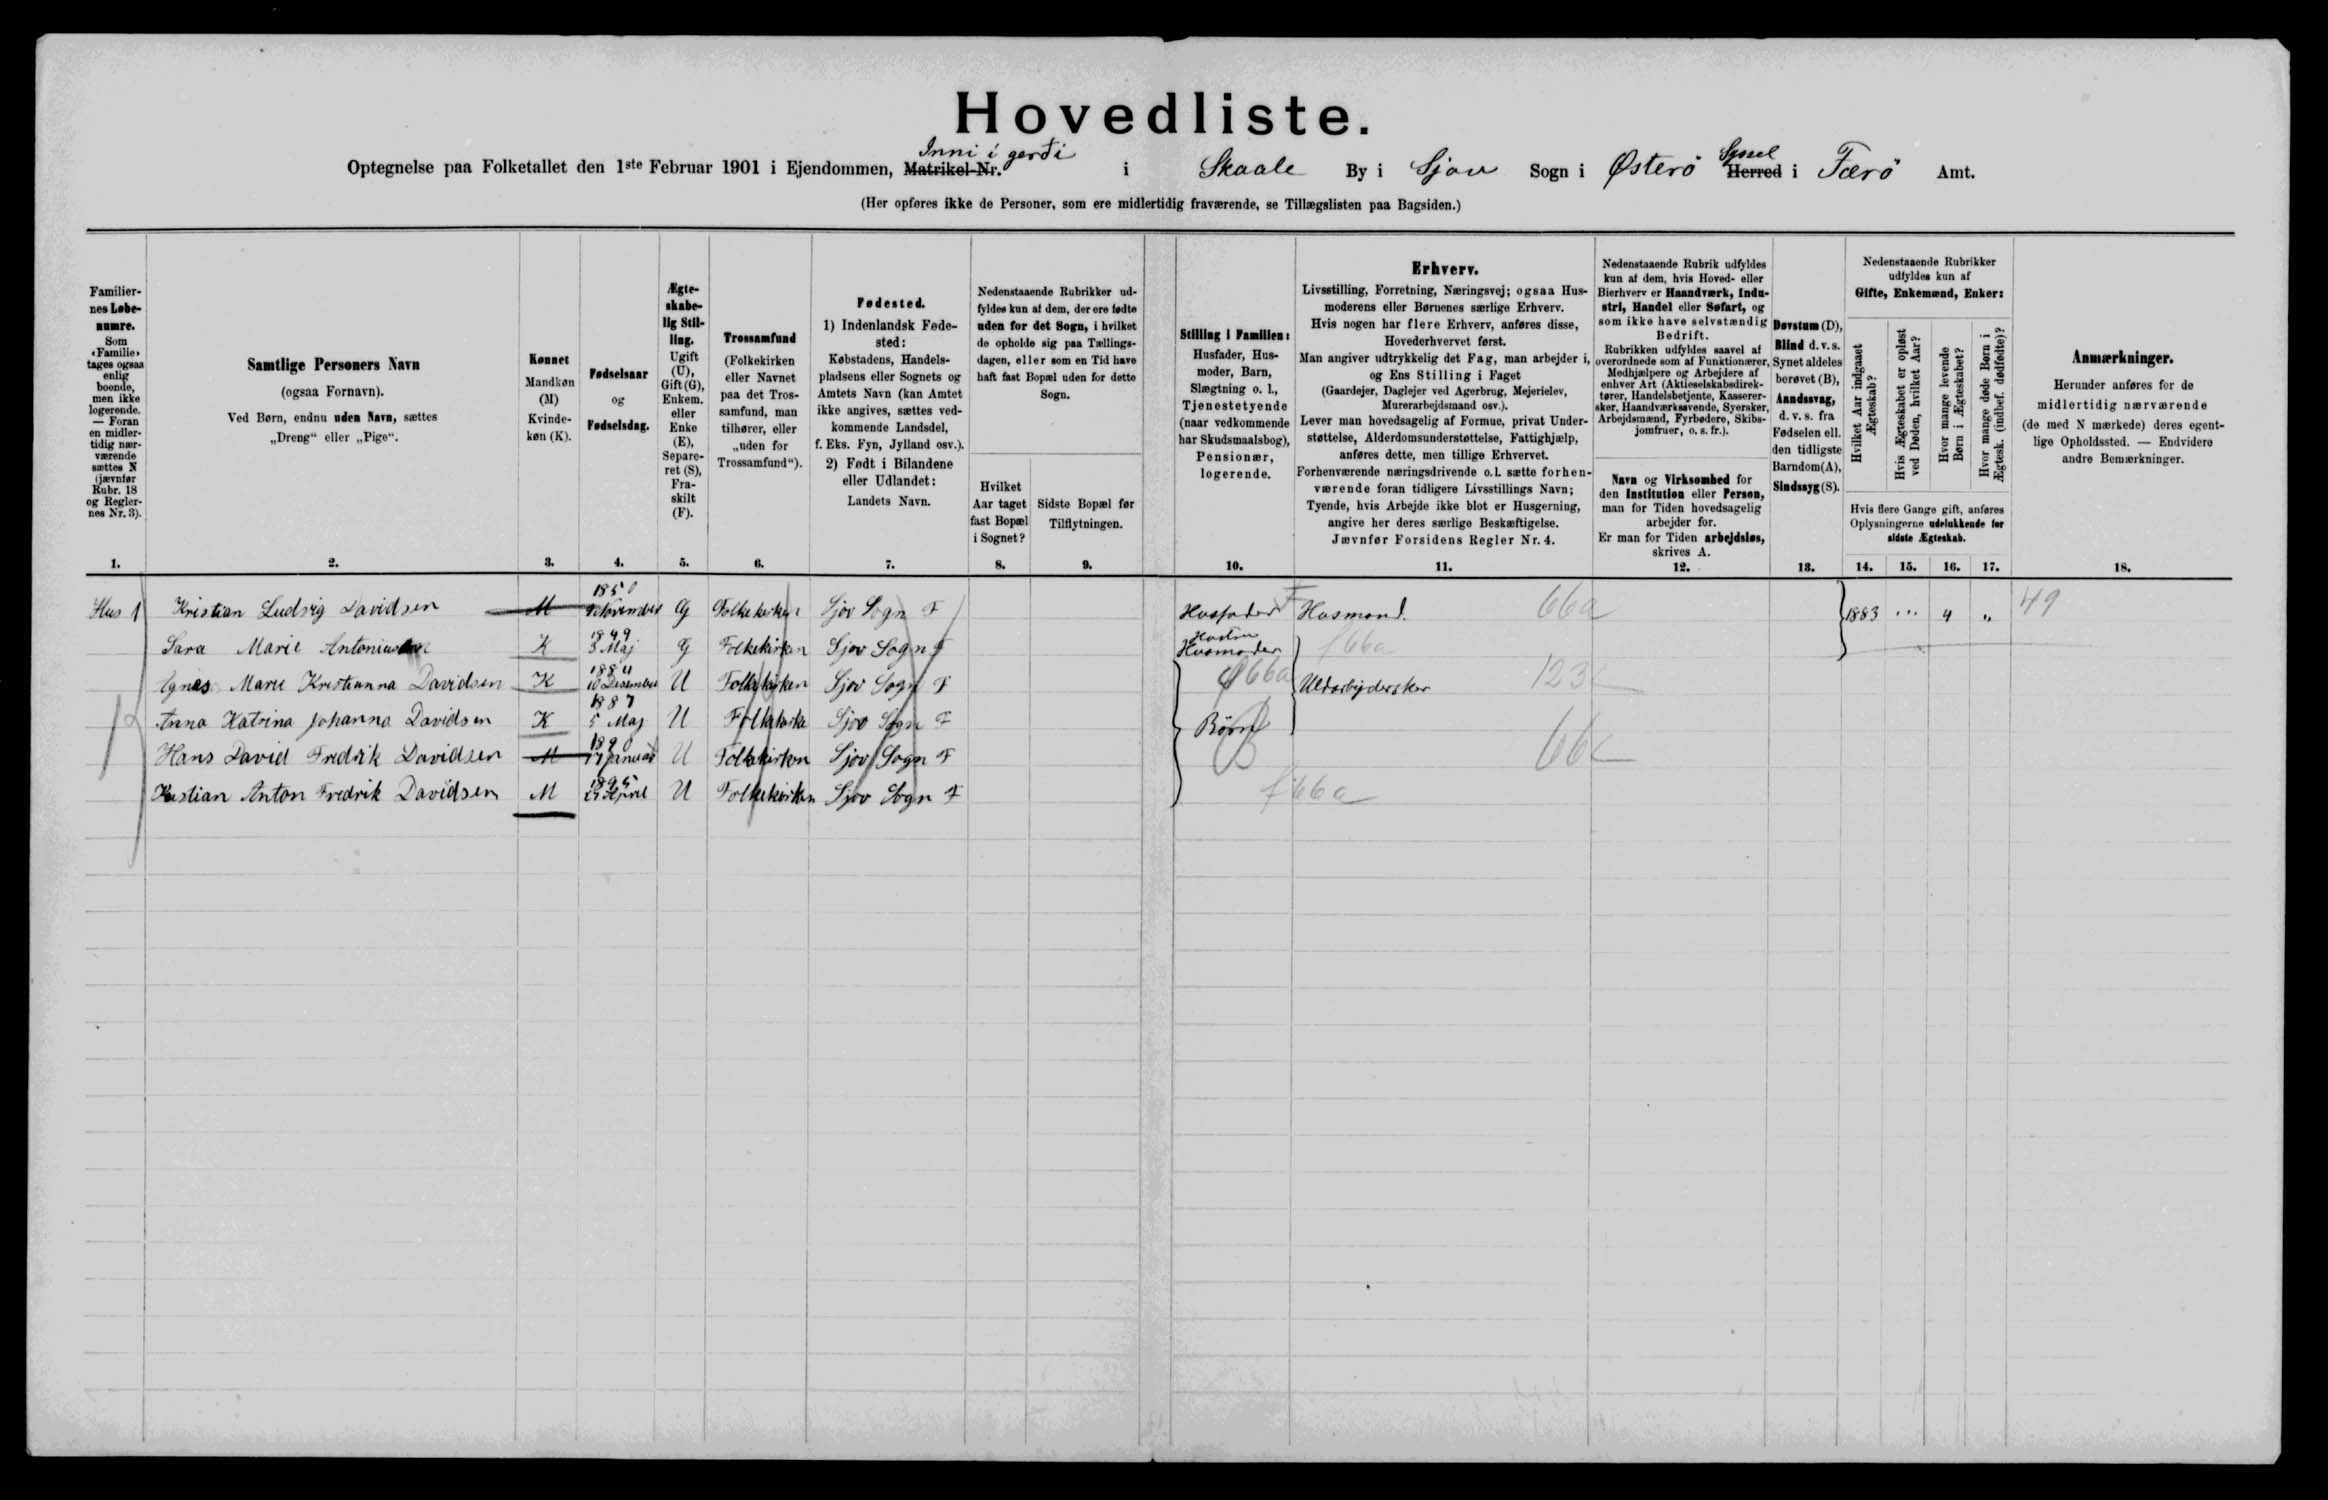 Hovedliste.
Optegnelse paa Folketallet den 1ste Februar 1901 i Ejendommen, Matrikel-Nr. Inni i gerði i Skaale By i Sjov Sogn i Østerö Herred Syssel i Færö Amt.
(Her opføres ikke de Personer, som ere midlertidig fraværende, se Tillægslisten paa Bagsiden.)
Familiernes Løbenumre.
Som «Familie» tages ogsaa enlig boende, men ikke logerende. — Foran en midlertidig nærværende sættes N (jævnfør Rubr. 18 og Reglernes Nr. 3).
Samtlige Personers Navn
(ogsaa Fornavn).
Ved Børn, endnu uden Navn, sættes
„Dreng“ eller „Pige“.
Kønnet
Mandkøn (M)
Kvindekøn (K).
Fødselsaar
og
Fødselsdag.
Ægteskabelig Stilling.
Ugift (U), Gift (G), Enkem. eller Enke (E), Separeret (S), Fraskilt (F).
Trossamfund
(Folkekirken eller Navnet paa det Trossamfund, man tilhører, eller „uden for Trossamfund“).
Fødested.
1) Indenlandsk Fødested:
Købstadens, Handelspladsens eller Sognets og Amtets Navn (kan Amtet ikke angives, sættes vedkommende Landsdel, f. Eks. Fyn, Jylland osv.).
2) Født i Bilandene eller Udlandet:
Landets Navn.
Nedenstaaende Rubrikker udfyldes kun af dem, der ere fødte uden for det Sogn, i hvilket de opholde sig paa Tællingsdagen, eller som en Tid have haft fast Bopæl uden for dette Sogn.
Hvilket Aar taget fast Bopæl i Sognet?
Sidste Bopæl før Tilflytningen.
Stilling i Familien:
Husfader, Husmoder, Barn, Slægtning o. l., Tjenestetyende (naar vedkommende har Skudsmaalsbog), Pensionær, logerende.
Erhverv.
Livsstilling, Forretning, Næringsvej; ogsaa Husmoderens eller Børnenes særlige Erhverv.
Hvis nogen har flere Erhverv, anføres disse, Hovederhvervet først.
Man angiver udtrykkelig det Fag, man arbejder i, og Ens Stilling i Faget
(Gaardejer, Daglejer ved Agerbrug, Mejerielev, Murerarbejdsmand osv.).
Lever man hovedsagelig af Formue, privat Understøttelse, Alderdomsunderstøttelse, Fattighjælp, anføres dette, men tillige Erhvervet.
Forhenværende næringsdrivende o.l. sætte forhenværende foran tidligere Livsstillings Navn;
Tyende, hvis Arbejde ikke blot er Husgerning, angive her deres særlige Beskæftigelse.
Jævnfør Forsidens Regler Nr. 4.
Nedenstaaende Rubrik udfyldes kun af dem, hvis Hoved- eller Bierhverv er Haandværk, Industri, Handel eller Søfart, og som ikke have selvstændig Bedrift.
Rubrikken udfyldes saavel af overordnede som af Funktionærer, Medhjælpere og Arbejdere af enhver Art (Aktieselskabsdirektører, Handelsbetjente, Kasserersker, Haandværkssvende, Syersker, Arbejdsmænd, Fyrbødere, Skibsjomfruer, o. s. fr.).
Navn og Virksomhed for den Institution eller Person, man for Tiden hovedsagelig arbejder for.
Er man for Tiden arbejdsløs, skrives A.
Døvstum (D),
Blind d. v. s. Synet aldeles berøvet (B),
Aandssvag, d. v. s. fra Fødselen ell. den tidligste Barndom (A),
Sindssyg (S).
Nedenstaaende Rubrikker udfyldes kun af
Gifte, Enkemænd, Enker:
Hvilket Aar indgaaet Ægteskab?
Hvis Ægteskabet er opløst ved Døden, hvilket Aar?
Hvor mange levende Børn i Ægteskabet?
Hvor mange døde Børn i Ægtesk. (indbef. dødfødte)?
Hvis flere Gange gift, anføres Oplysningerne udelukkende for sidste Ægteskab.
Anmærkninger.
Herunder anføres for de midlertidig nærværende (de med N mærkede) deres egentlige Opholdssted. — Endvidere andre Bemærkninger.
1. 2. 3. 4. 5. 6. 7. 8. 9. 10. 11. 12. 13. 14. 15. 16. 17. 18.
Hus 1 Kristian Ludvig Davidsen M 1850 November G Folkekirken Sjov Sogn F Husfader F Husmand. 66a 1883 ... 4 „ 49
Sara Marie K 1849 8 Maj G Folkekirken Sjov Sogn F Hustru Husmoder f66a
Agnes Marie Kristianna Davidsen K 1884 10 Desember U Folkekirken Sjov Sogn F f66a Uldarbejdersker 123
Anna Katrina Johanna Davidsen K 1887 5 Maj U Folkekirke Sjov Sogn F Børn
Hans David Fredrik Davidsen M 1890 17 Januar U Folkekirken Sjov Sogn F 66
Kristian Anton Fredrik Davidsen M 1895 April U Folkekirken Sjov Sogn F f66a